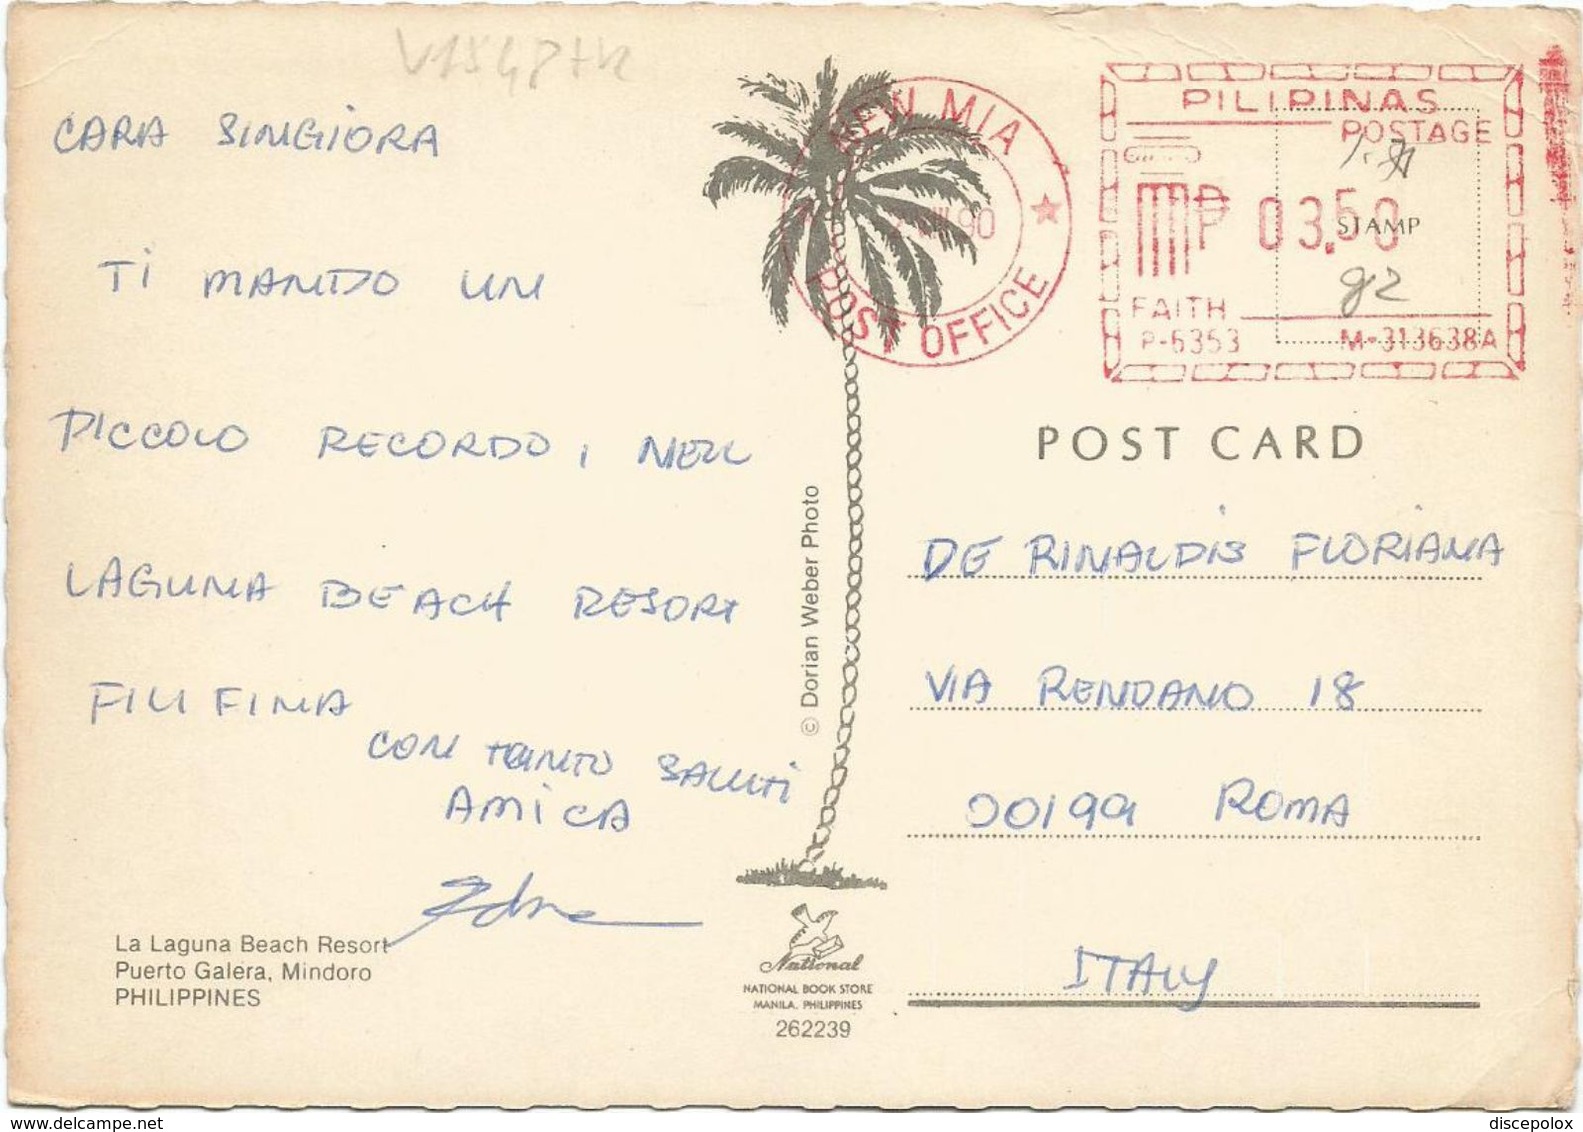 CARA SINGIORA
TI MANDO UN
PICCOLO RECORDO, NELL
LAGUNA BEACH RESORT
FILIFINA
CON TANTO SALUTI
AMICA
La Laguna Beach Resort
Puerto Galera, Mindoro
PHILIPPINES
© Dorian Weber Photo
National
NATIONAL BOOK STORE
MANILA, PHILIPPINES
262239
NEW MIA
90
POST OFFICE
PILIPINAS
POSTAGE
03.50
STAMP
92
FAITH
P-6353
M-313638A
POST CARD
DE RINALDIS FLORIANA
VIA RENDANO 18
00199 ROMA
ITALY
www.delcampe.net
discepolox